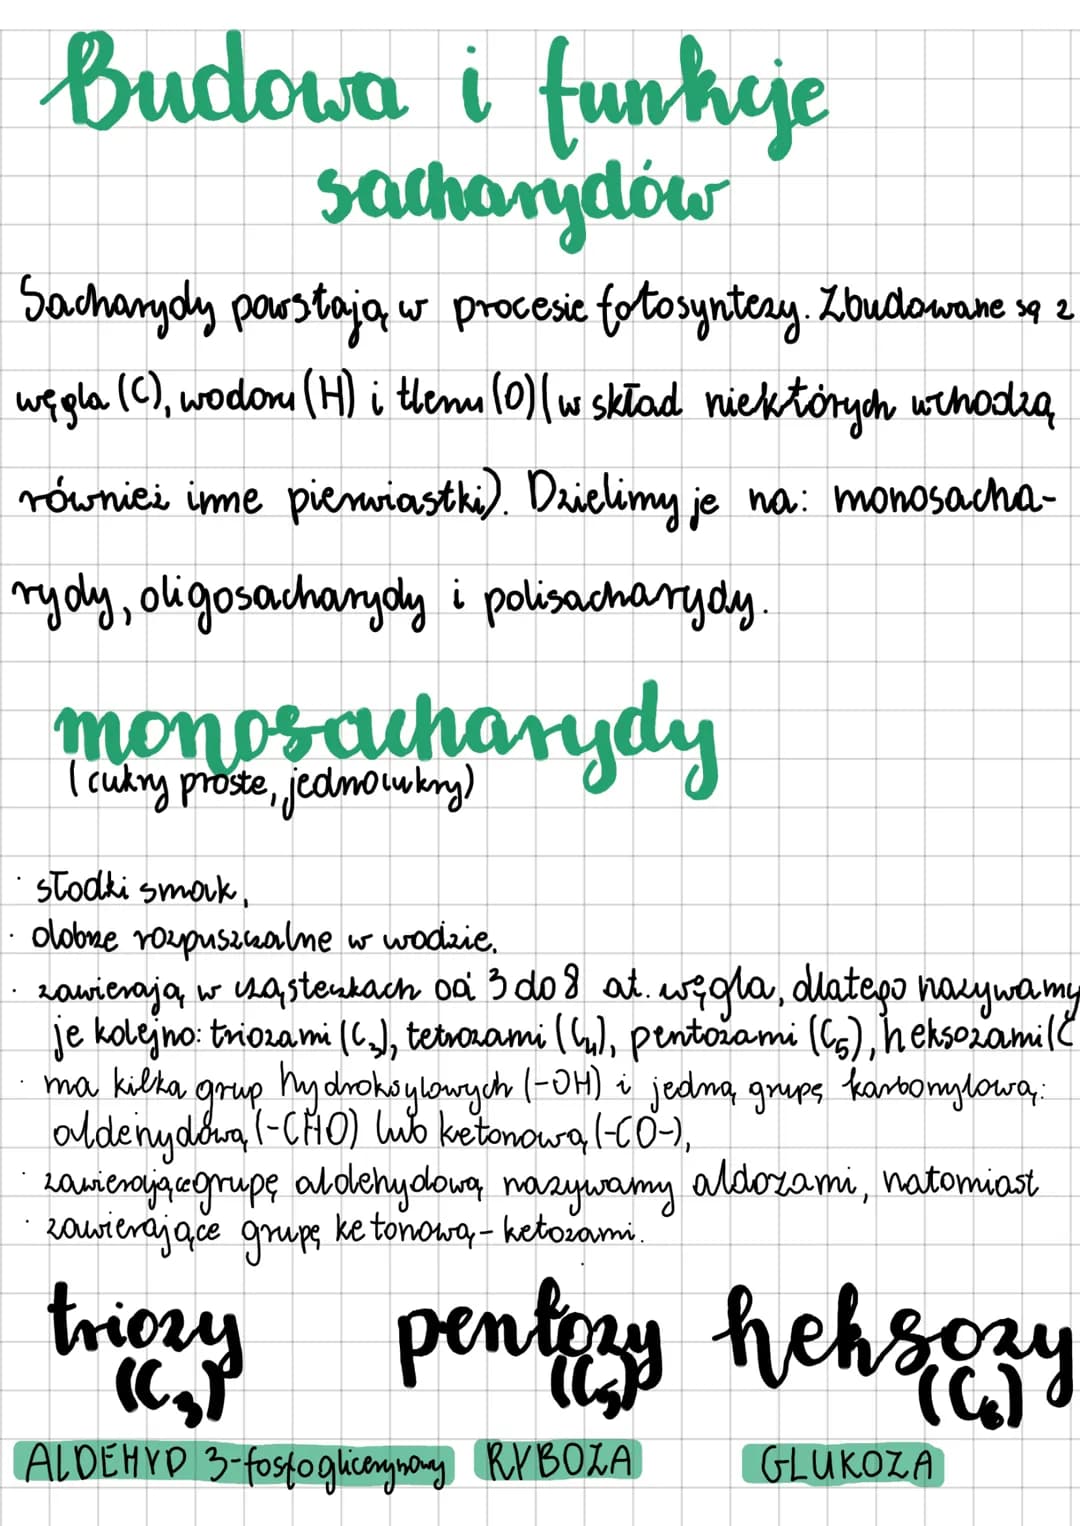 Budowa i funkcje
sacharydów
Sacharydy powstają w procesie fotosyntezy. Zbudowane są z
węgla (C), wodoru (H) i tlenu (O) (w skład niektórych wchodzą
również inne pierwiastki). Dzielimy je na: monosacha-
rydy, oligosacharydy i polisacharydy.
monosacharydy
(cukry proste, jednocukry)
· słodki smak,
· dobrze rozpuszczalne w wodzie,
· zawierają w cząsteczkach od 3 do 8 at. węgla, dlatego nazywamy
je kolejno: triozami (C₃), tetrozami (C₄), pentozami (C₅), heksozami (C
· ma kilka grup hydroksylowych (-OH) i jedną grupę karbonylową:
aldehydową (-CHO) lub ketonową (-CO-),
· zawierające grupę aldehydową nazywamy aldozami, natomiast
· zawierające grupę ketonową - ketozami.
triozy pentozy heksozy
(C₃) (C₅) (C₆)
ALDEHYD 3-fosfoglicerynowy RYBOZA GLUKOZA